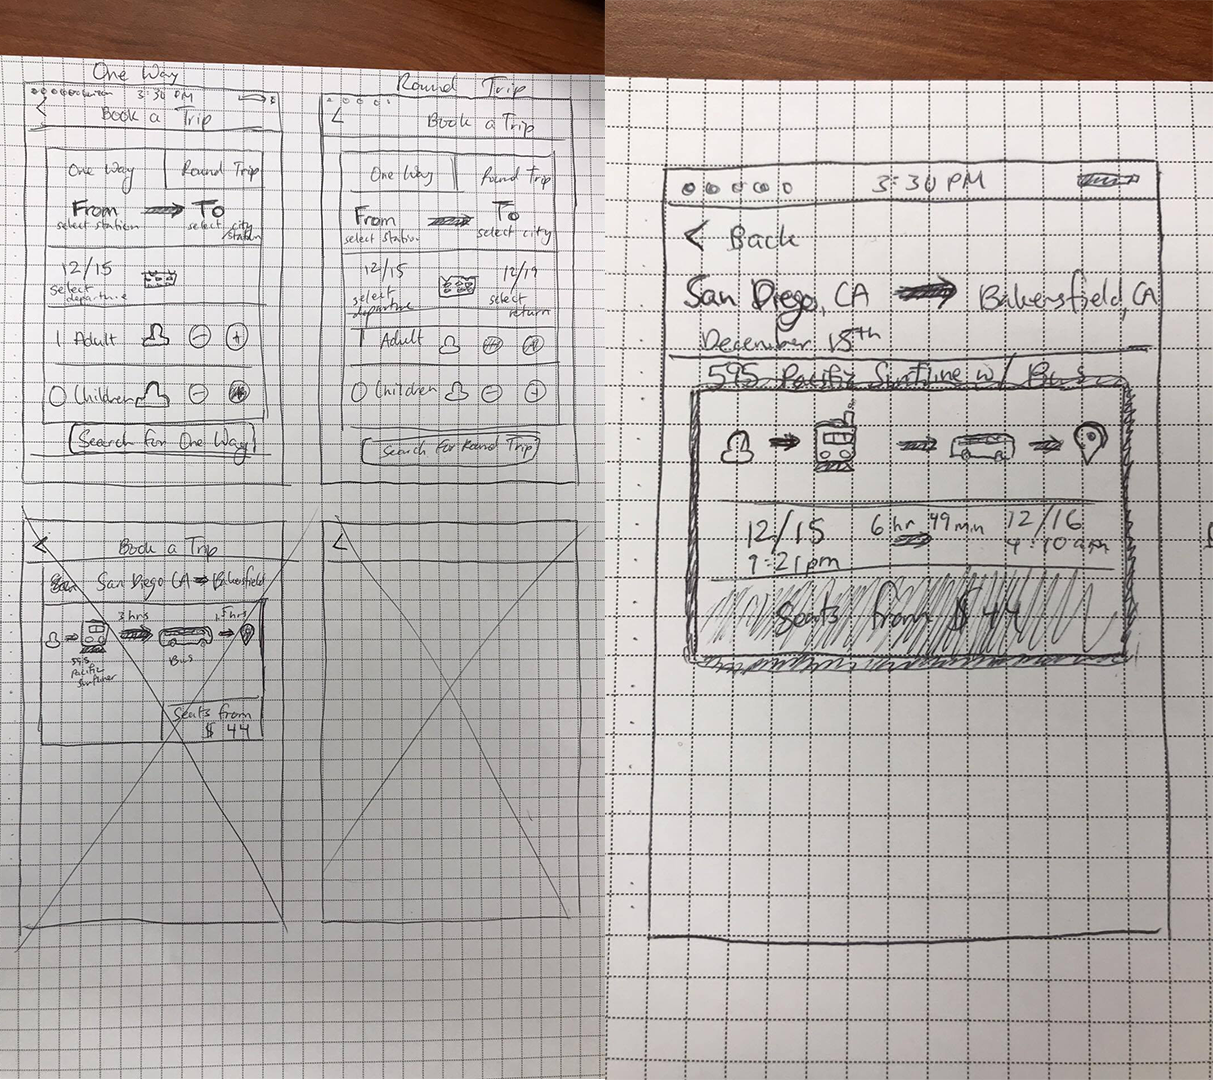 One Way
3:30 PM
Book a Trip
One Way Round Trip
From To
select station select city/station
12/15
select departure
1 Adult - +
0 Children -
Search for One Way
Round Trip
Book a Trip
One Way Round Trip
From To
select station select city
12/15 12/19
select departure select return
1 Adult
0 Children - +
Search for Round Trip
Book a Trip
San Diego CA Bakersfield
3 hrs 1.5 hrs
595 Pacific Bus
Seats from
$ 44
3:30 PM
< Back
San Diego, CA Bakersfield, CA
December 15th
595 Pacific Surfline w/ Bus
12/15 6 hr 49 min 12/16
9:21pm 4:10am
Seats from $44